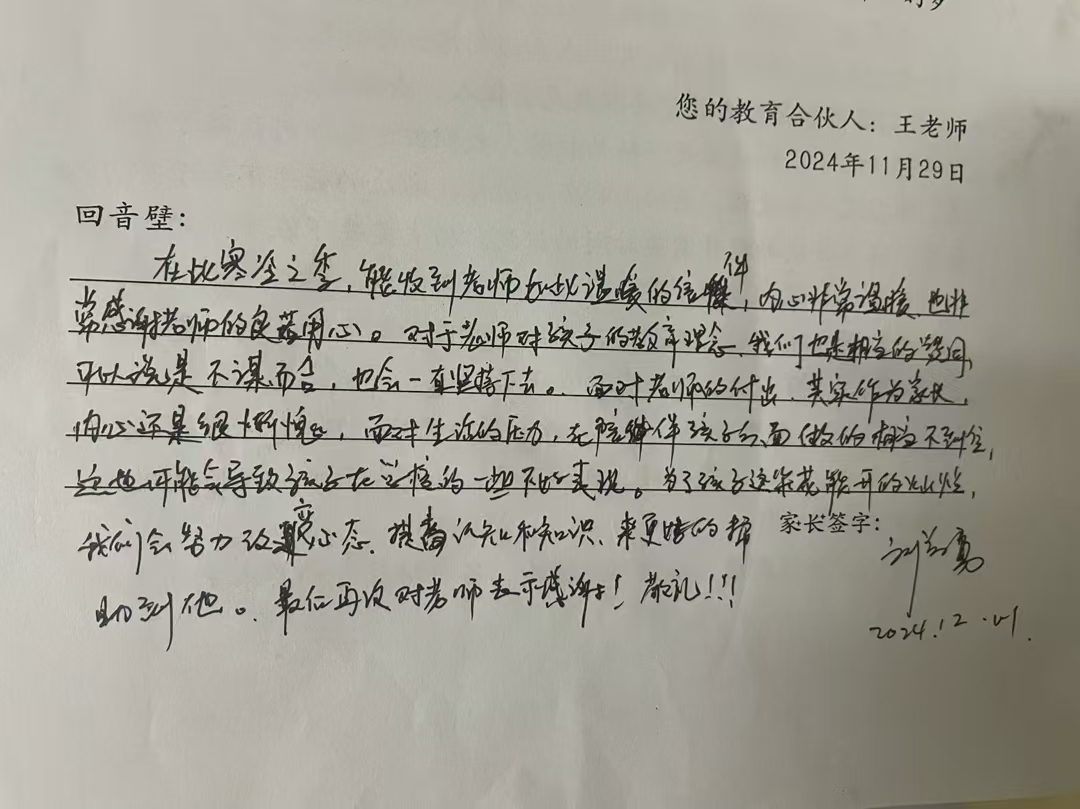 的梦
您的教育合伙人：王老师
2024年11月29日
回音壁：
在此寒冷之季，能收到老师如此温暖的信件，内心非常温暖，也非
常感谢老师的良苦用心。对于老师对孩子的教育理念，我们也是相应的赞同，
可以说是不谋而合，也会一直坚持下去。面对老师的付出，其实作为家长，
内心还是很惭愧，面对生活的压力，在陪伴孩子方面做的相当不到位，
这也可能会导致孩子在学校的一些不好表现。为了孩子这朵花能开的灿烂，
我们会努力改变心态，提高认知和知识，来更好的帮
助到他。最后再次对老师表示感谢！敬礼！！！
家长签字：
2024.12.01.